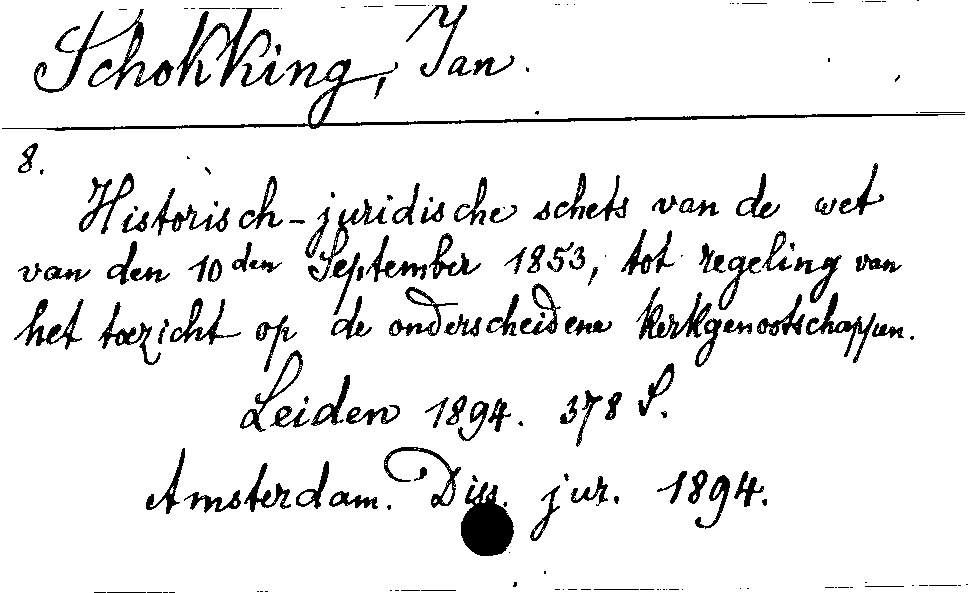 Schokking, Jan.
8.
Historisch-juridische schets van de wet
van den 10den September 1853, tot regeling van
het toezicht op de onderscheidene kerkgenootschappen.
Leiden 1894. 378 S.
Amsterdam. Diss. jur. 1894.